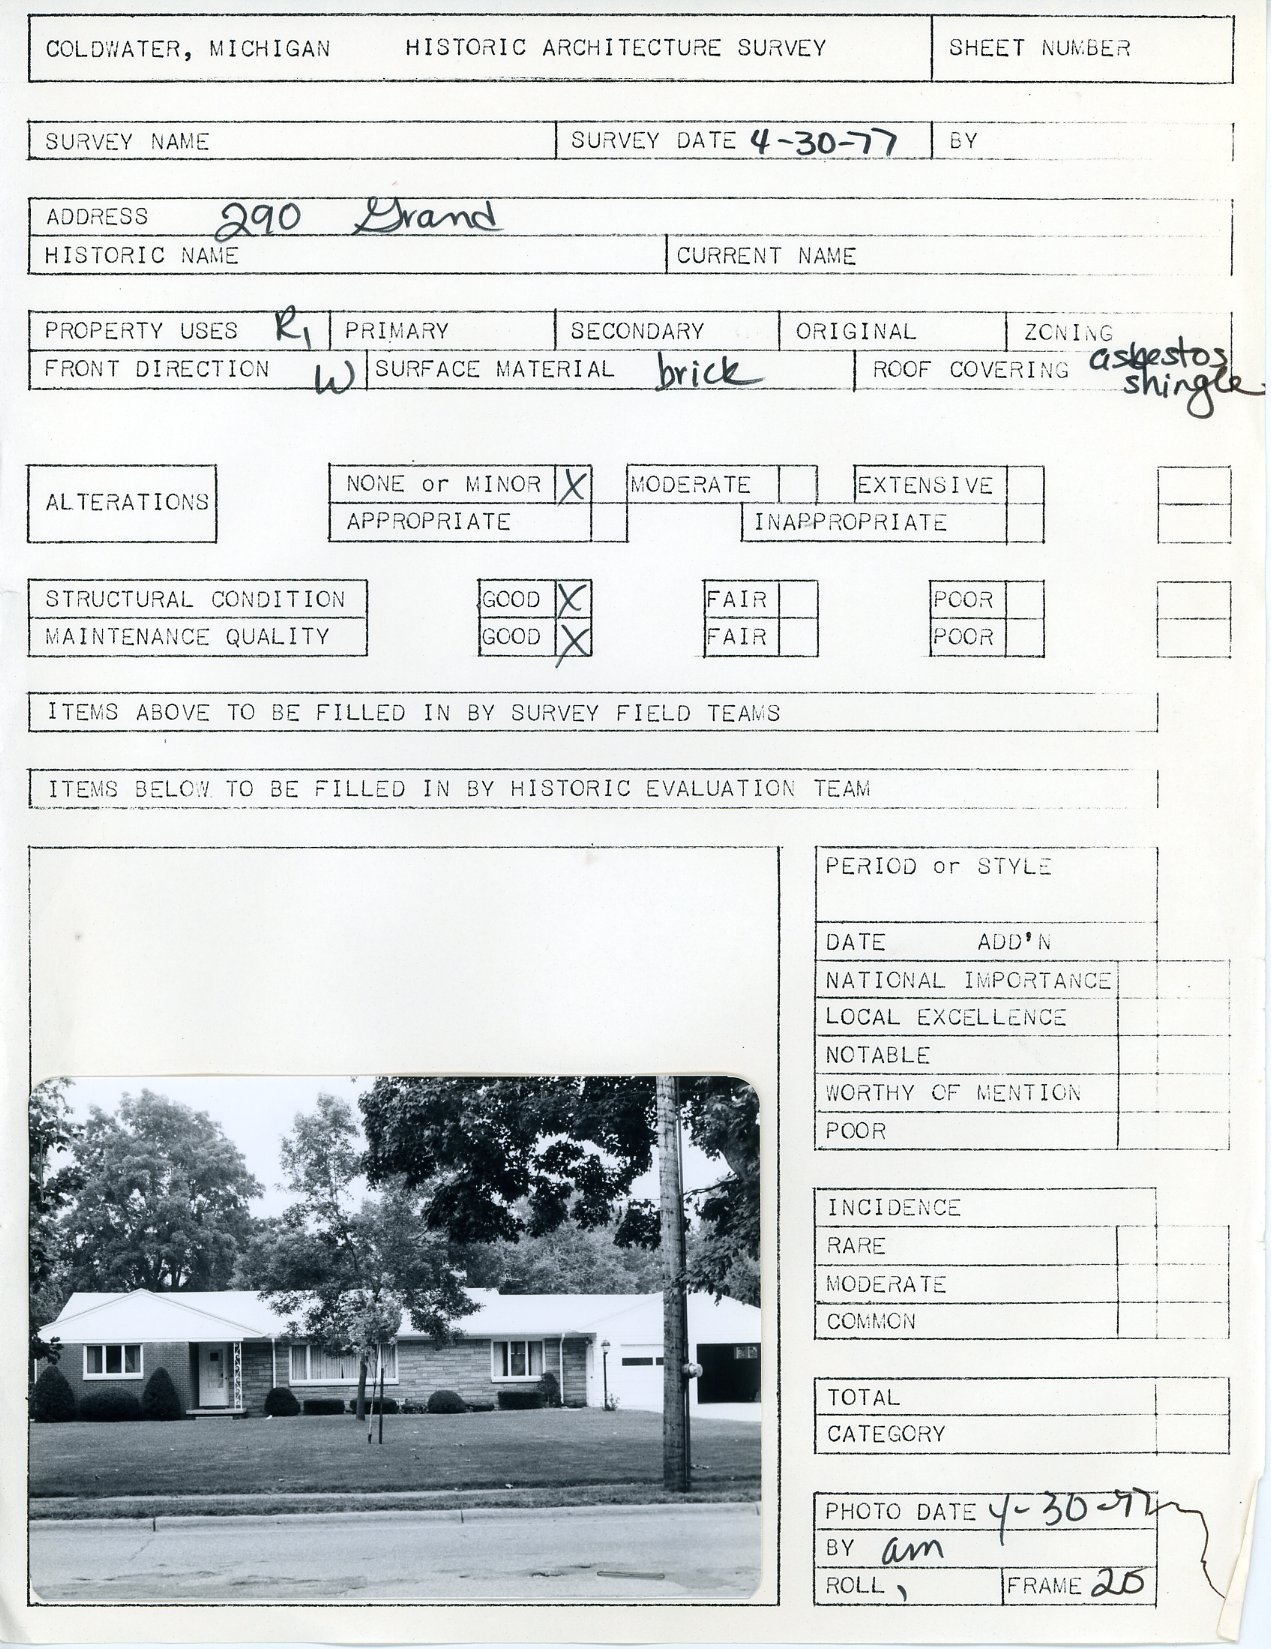 COLDWATER, MICHIGAN HISTORIC ARCHITECTURE SURVEY SHEET NUMBER
SURVEY NAME SURVEY DATE 4-30-77 BY
ADDRESS 290 Grand
HISTORIC NAME CURRENT NAME
PROPERTY USES R1 PRIMARY SECONDARY ORIGINAL ZONING
FRONT DIRECTION W SURFACE MATERIAL brick ROOF COVERING asbestos
shingle
ALTERATIONS NONE or MINOR X MODERATE EXTENSIVE
APPROPRIATE INAPPROPRIATE
STRUCTURAL CONDITION GOOD X FAIR POOR
MAINTENANCE QUALITY GOOD X FAIR POOR
ITEMS ABOVE TO BE FILLED IN BY SURVEY FIELD TEAMS
ITEMS BELOW TO BE FILLED IN BY HISTORIC EVALUATION TEAM
PERIOD or STYLE
DATE ADD'N
NATIONAL IMPORTANCE
LOCAL EXCELLENCE
NOTABLE
WORTHY OF MENTION
POOR
INCIDENCE
RARE
MODERATE
COMMON
TOTAL
CATEGORY
PHOTO DATE 4-30-77
BY am
ROLL FRAME